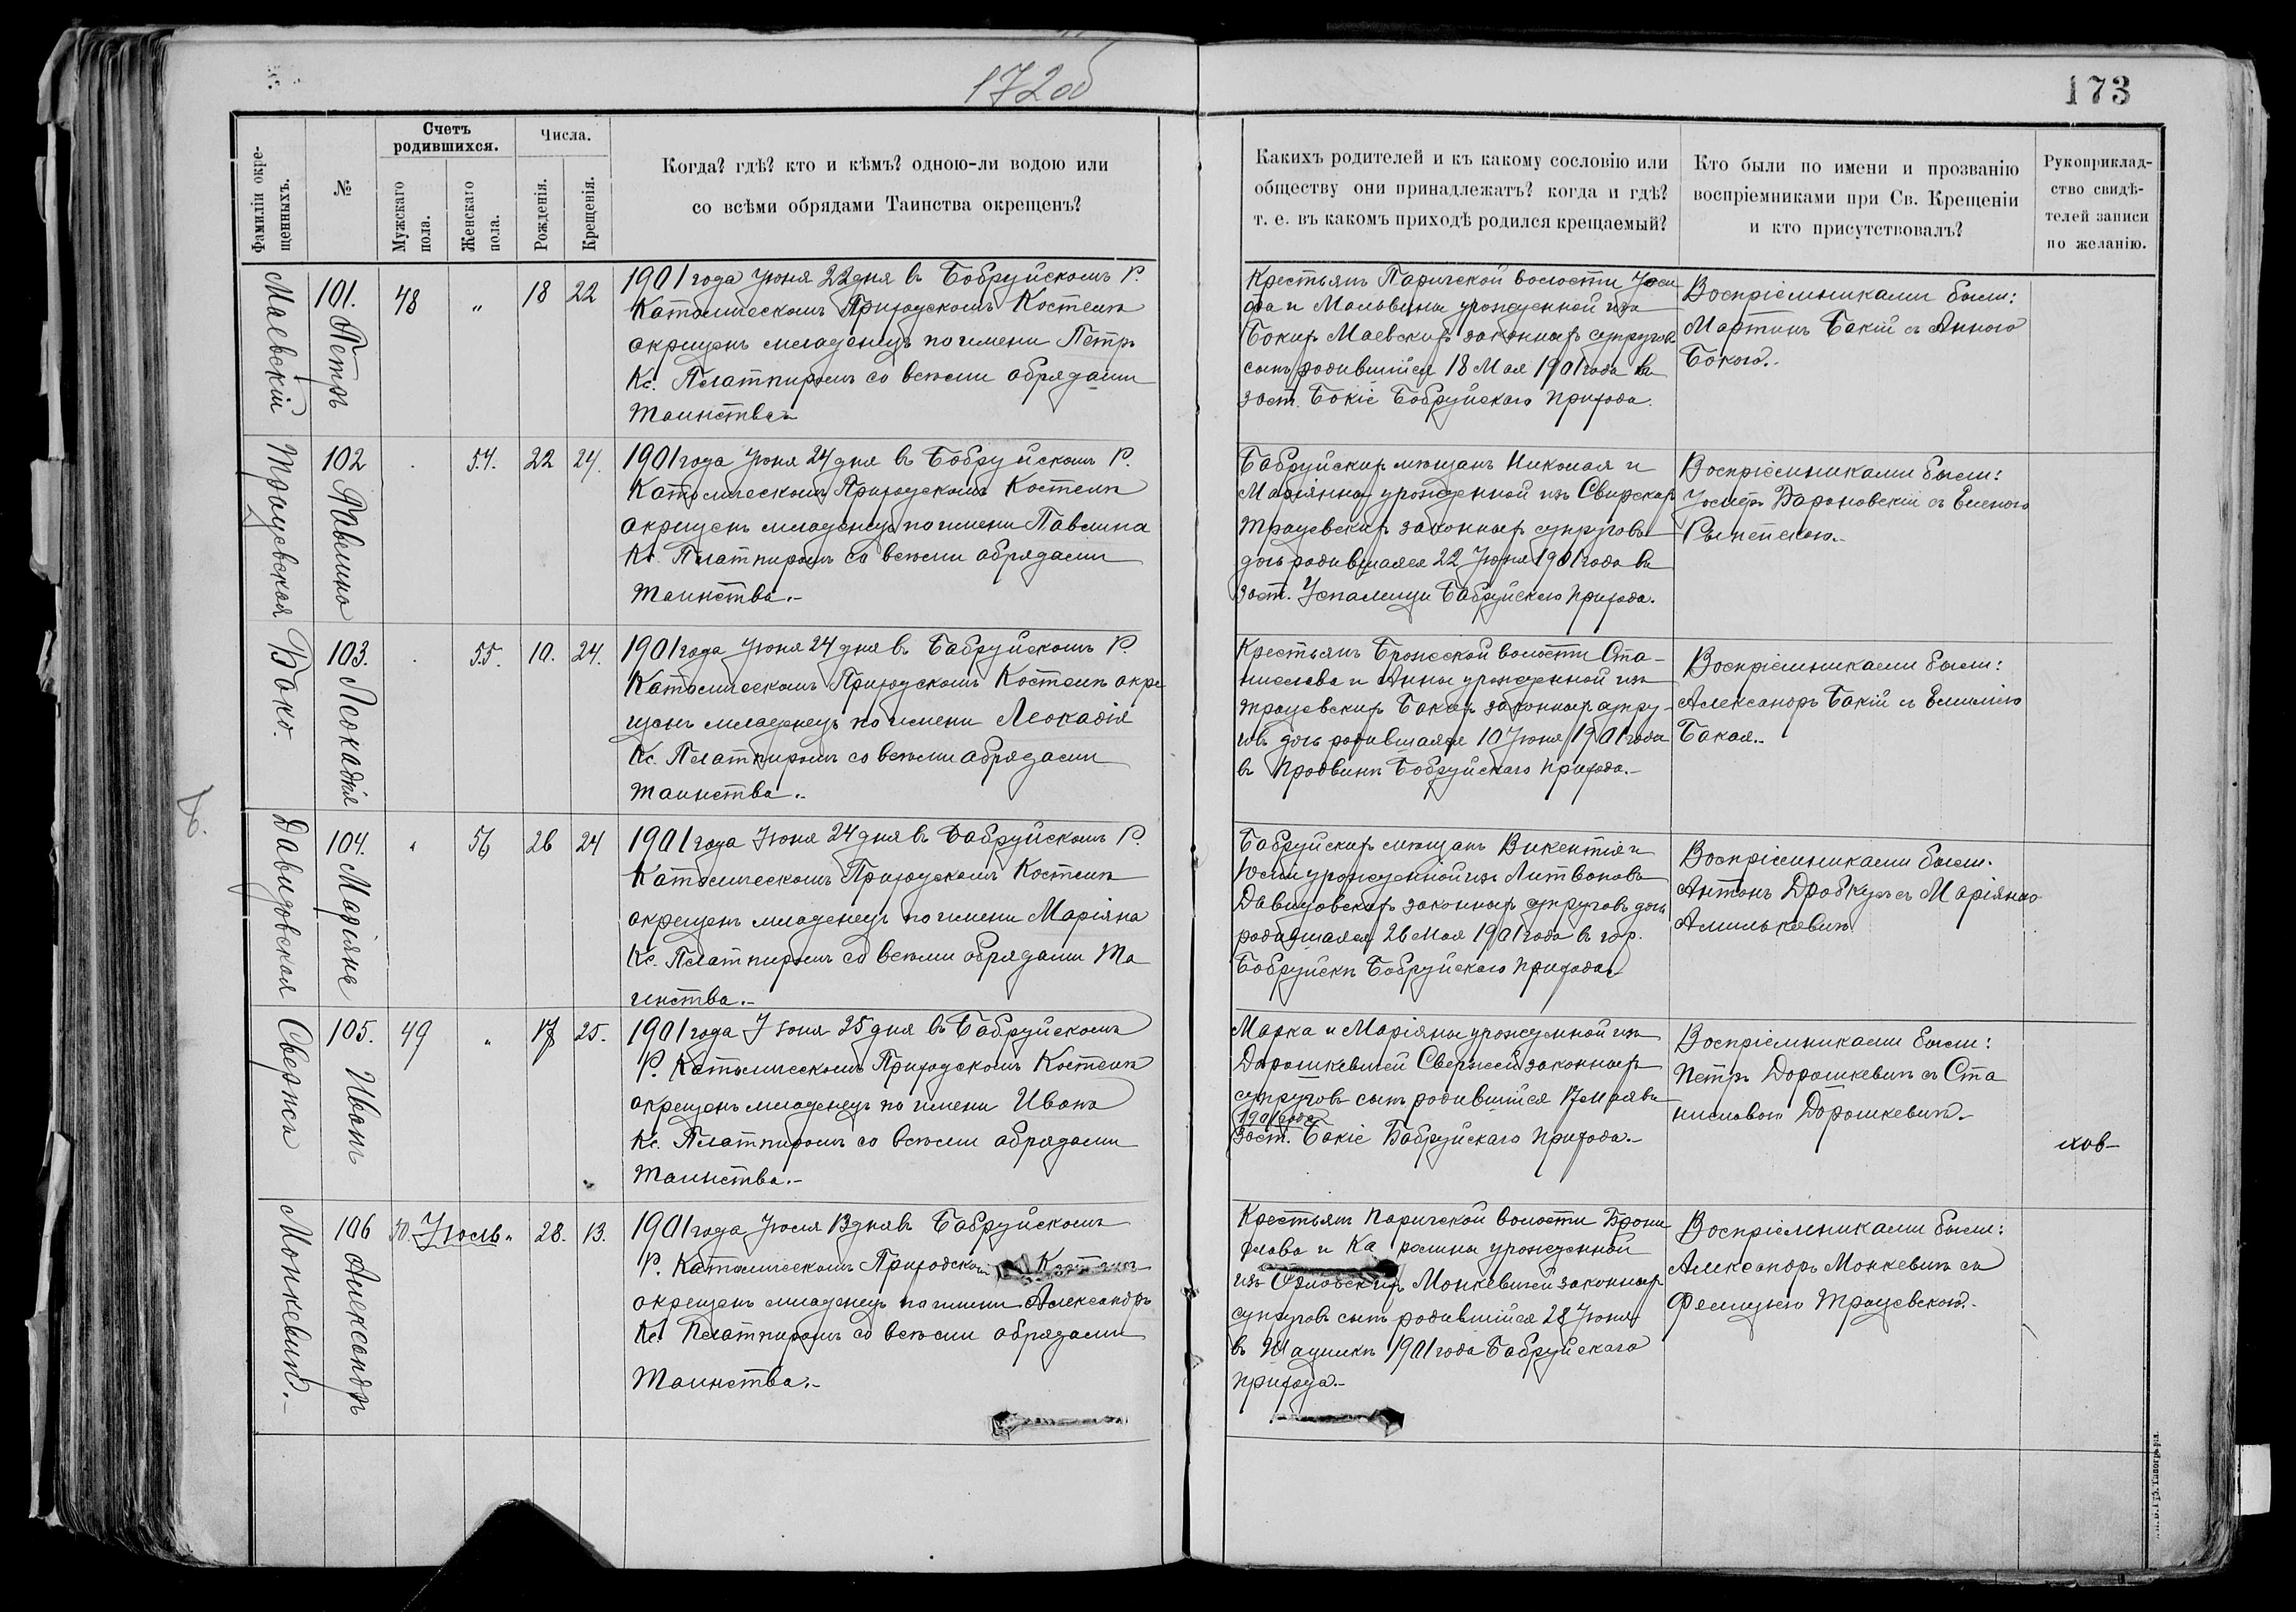 172 об
173
Фамиліи окре-
щенныхъ.
№
Счетъ
родившихся.
Мужскаго
пола.
Женскаго
пола.
Числа.
Рожденія.
Крещенія.
Когда? гдѣ? кто и кѣмъ? одною-ли водою или
со всѣми обрядами Таинства окрещенъ?
Какихъ родителей и къ какому сословію или
обществу они принадлежатъ? когда и гдѣ?
т. е. въ какомъ приходѣ родился крещаемый?
Кто были по имени и прозванію
воспріемниками при Св. Крещеніи
и кто присутствовалъ?
Рукоприклад-
ство свидѣ-
телей записи
по желанію.
Маевскій
101. Петръ
48 " 18 22
1901 года Іюня 22 дня въ Бобруйскомъ Р.
Католическомъ Приходскомъ Костелѣ
окрещенъ младенецъ по имени Петръ
Кс. Пляттиромъ со всѣми обрядами
Таинства
Крестьянъ Паричской волости Іоси
фа и Мальвины урожденной изъ
Бокихъ Маевскихъ законныхъ супруговъ
сынъ родившійся 18 Мая 1901 года въ
заст. Бокіе Бобруйскаго прихода.
Воспріемниками были:
Мартинъ Бакій съ Анною
Бокою.
Трацевская
102 Павлина
54. 22 24.
1901 года Іюня 24 дня въ Бобруйскомъ Р.
Католическомъ Приходскомъ Костелѣ
окрещенъ младенецъ по имени Павлина
Кс. Пляттиромъ со всѣми обрядами
Таинства.-
Бобруйскихъ мѣщанъ Николая и
Маріянны урожденной изъ Свирскихъ
Трацевскихъ законныхъ супруговъ
дочь родившаяся 22 Іюня 1901 года въ
заст. Бобруйскаго прихода.
Воспріемниками были:
Іосифъ Барановскій съ Еленою
Боко.
103. Леокадія
55. 10. 24.
1901 года Іюня 24 дня въ Бобруйскомъ Р.
Католическомъ Приходскомъ Костелѣ окре
щенъ младенецъ по имени Леокадія
Кс. Пляттиромъ со всѣми обрядами
Таинства.-
Крестьянъ Брожской волости Ста-
нислава и Анны урожденной изъ
Трацевскихъ Бокихъ законныхъ супру-
говъ дочь родившаяся 10 Іюня 1901 года
въ Продвинѣ Бобруйскаго прихода.-
Воспріемниками были:
Александръ Бакій съ Емиліею
Бакая.-
Давидовская
104. Маріяна
" 56 26 24
1901 года Іюня 24 дня въ Бобруйскомъ Р.
Католическомъ Приходскомъ Костелѣ
окрещенъ младенецъ по имени Маріяна
Кс. Пляттиромъ со всѣми обрядами Та
инства.-
Бобруйскихъ мѣщанъ Викентія и
Юліи урожденной изъ Литвиновъ
Давидовскихъ законныхъ супруговъ дочь
родившаяся 26 Мая 1901 года въ гор.
Бобруйскѣ Бобруйскаго прихода
Воспріемниками были.
Антонъ съ Маріяною
105. Иванъ
49 " 17 25.
1901 года Іюня 25 дня въ Бобруйскомъ
Р. Католическомъ Приходскомъ Костелѣ
окрещенъ младенецъ по имени Иванъ
Кс. Пляттиромъ со всѣми обрядами
Таинства.-
Марка и Маріяны урожденной изъ
Дорошкевичей законныхъ
супруговъ сынъ родившійся 17 мая въ
1901 года
Заст. Бокіе Бобруйскаго прихода.-
Воспріемниками были:
Петръ Дорошкевичъ съ Ста
ниславою Дорошкевичъ.-
Монкевичъ.-
106 Александръ
50. Іюль " 28. 13.
1901 года Іюля 13 дня въ Бобруйскомъ
Р. Католическомъ Приходскомъ Костелѣ
окрещенъ младенецъ по имени Александръ
Кс. Пляттиромъ со всѣми обрядами
Таинства.-
Крестьянъ Паричской волости Брони
слава и Ка ролины урожденной
изъ Монкевичей законныхъ
супруговъ сынъ родившійся 28 Іюня
въ 1901 года Бобруйскаго
прихода.-
Воспріемниками были:
Александръ Монкевичъ съ
Фелицыею Трацевскою.-